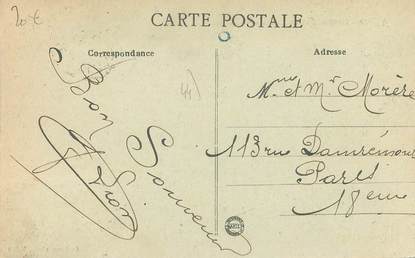 20 €
CARTE POSTALE
Correspondance
Adresse
Bon
Souvenir
Mme et Mr Morère
113 rue Damrémont
Paris
18eme